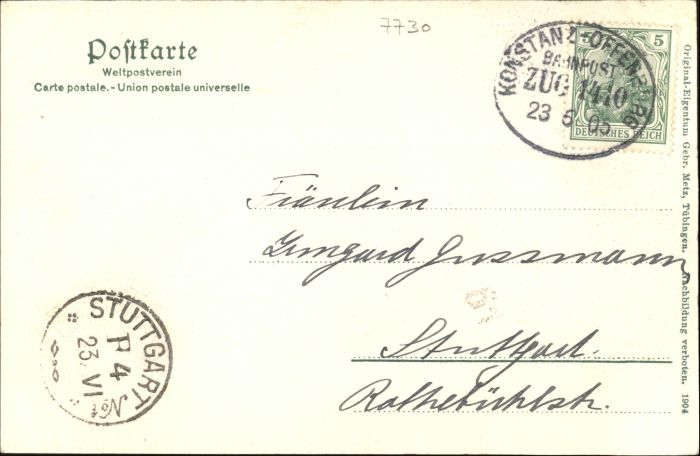 7730
Postkarte
Weltpostverein
Carte postale. - Union postale universelle
KONSTANZ-OFFENBURG
BAHNPOST
ZUG 1410
23 6 05
5
DEUTSCHES REICH
Fräulein
Irmgard Gussmann
Stuttgart.
Rothebühlstr.
STUTTGART
P 4
23. VI
No 1
Original-Eigentum Gebr. Metz, Tübingen. Nachbildung verboten. 1904